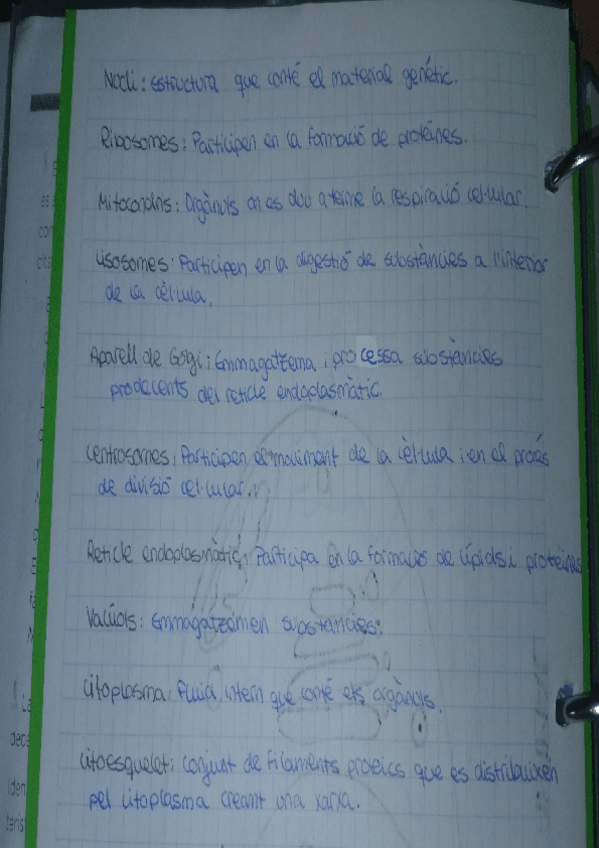 Nucli: Estructura que conté el material genétic.
Ribosomes: Participen en la formació de proteïnes.
Mitocondris: Orgànuls on es duu a terme la respiració cel·lular.
Lisosomes: Participen en la digestió de substàncies a l'interior
de la cèl·lula.
Aparell de Golgi: Emmagatzema i processa substàncies
procedents del reticle endoplasmàtic.
Centrosomes: Participen el moviment de la cèl·lula i en el procés
de divisió cel·lular.
Reticle endoplasmàtic: Participa en la formació de lípids i proteïnes
Vacúols: Emmagatzemen substancies.
Citoplasma: Fluid intern que conté els orgànuls.
Citoesquelet: Conjunt de filaments proteics que es distribuixen
pel citoplasma creant una xarxa.